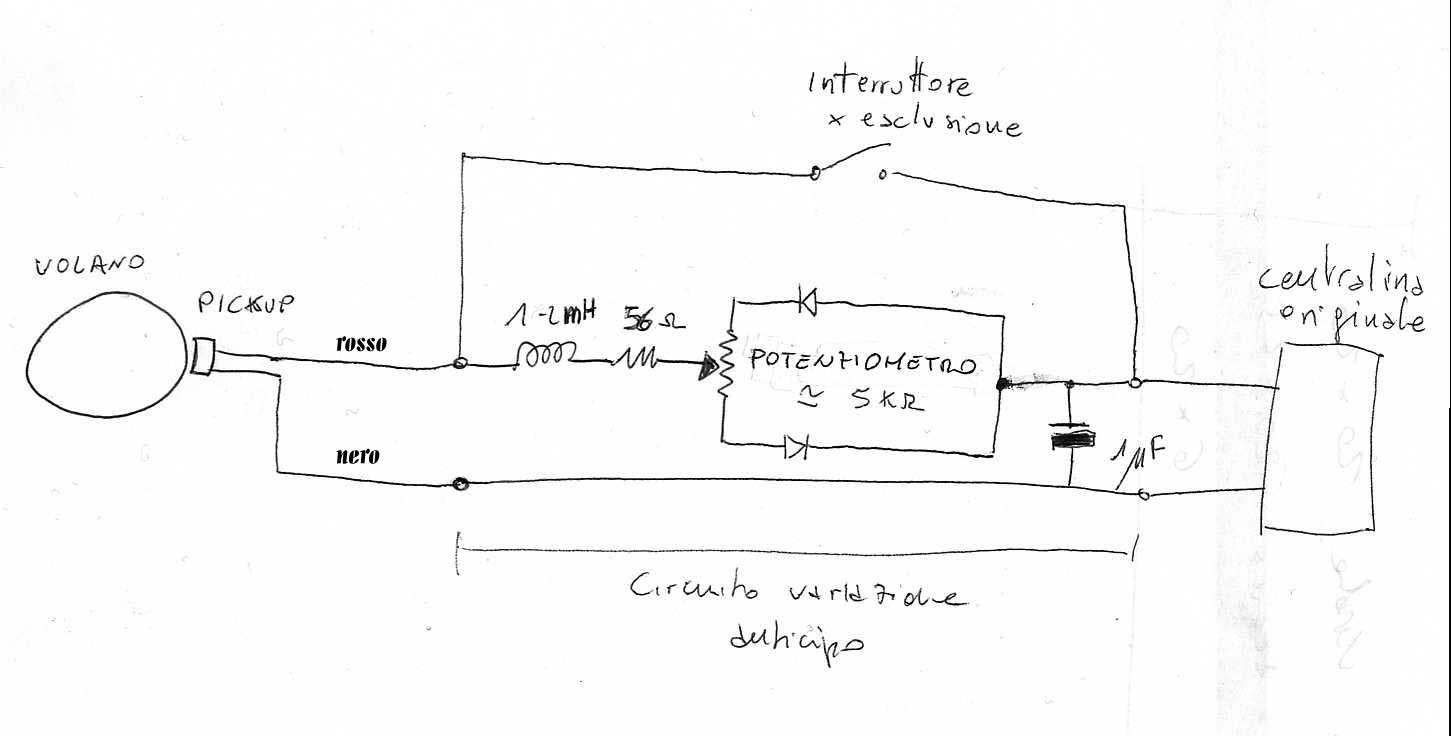 Interruttore
x esclusione
VOLANO
PICKUP
rosso
1-2mH
56Ω
POTENZIOMETRO
≃ 5KΩ
centralina
originale
nero
1µF
Circuito variazione
anticipo